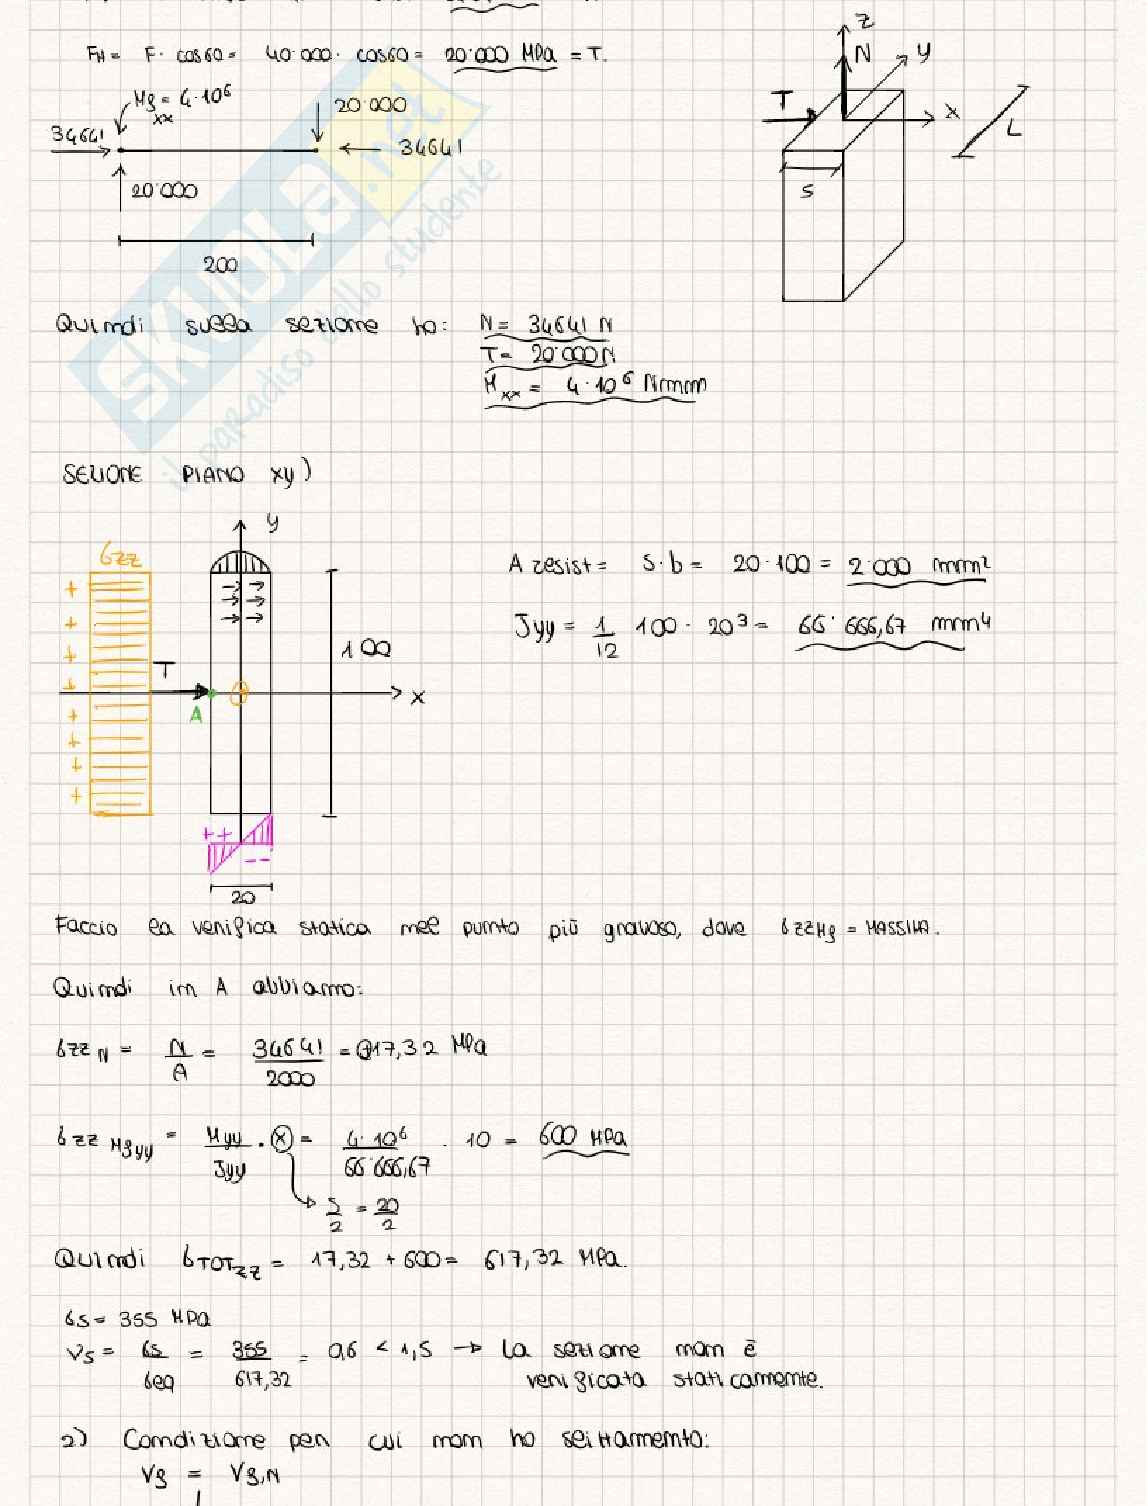 FH = F · cos60 = 40'000 · cos60 = 20'000 MPa = T.
Mf = 4·10⁶
xx
20'000
34641
34641
20'000
200
z
N
y
T
x
L
s
Quindi sulla sezione ho: N = 34641 N
T = 20'000 N
Mxx = 4·10⁶ Nmm
SKUOLA.net
il paradiso dello studente
SEZIONE PIANO xy)
y
σzz
A resist = s·b = 20·100 = 2'000 mm²
Jyy = 1/12 100 · 20³ = 66'666,67 mm⁴
100
T
x
A
+ + + + + + + +
++
--
20
Faccio la verifica statica nel punto più gravoso, dove σzzMf = MASSIMA.
Quindi in A abbiamo:
σzz N = N/A = 34641/2000 = ⊕17,32 MPa
σzz Mfyy = Myy/Jyy · x = 4·10⁶/66'666,67 · 10 = 600 MPa
s/2 = 20/2
Quindi σTOTzz = 17,32 + 600 = 617,32 MPa.
σs = 355 MPa
νs = σs/σeq = 355/617,32 = 0,6 < 1,5 → la sezione non è
verificata staticamente.
2) Condizione per cui non ho serramento:
Vf = Vf,N